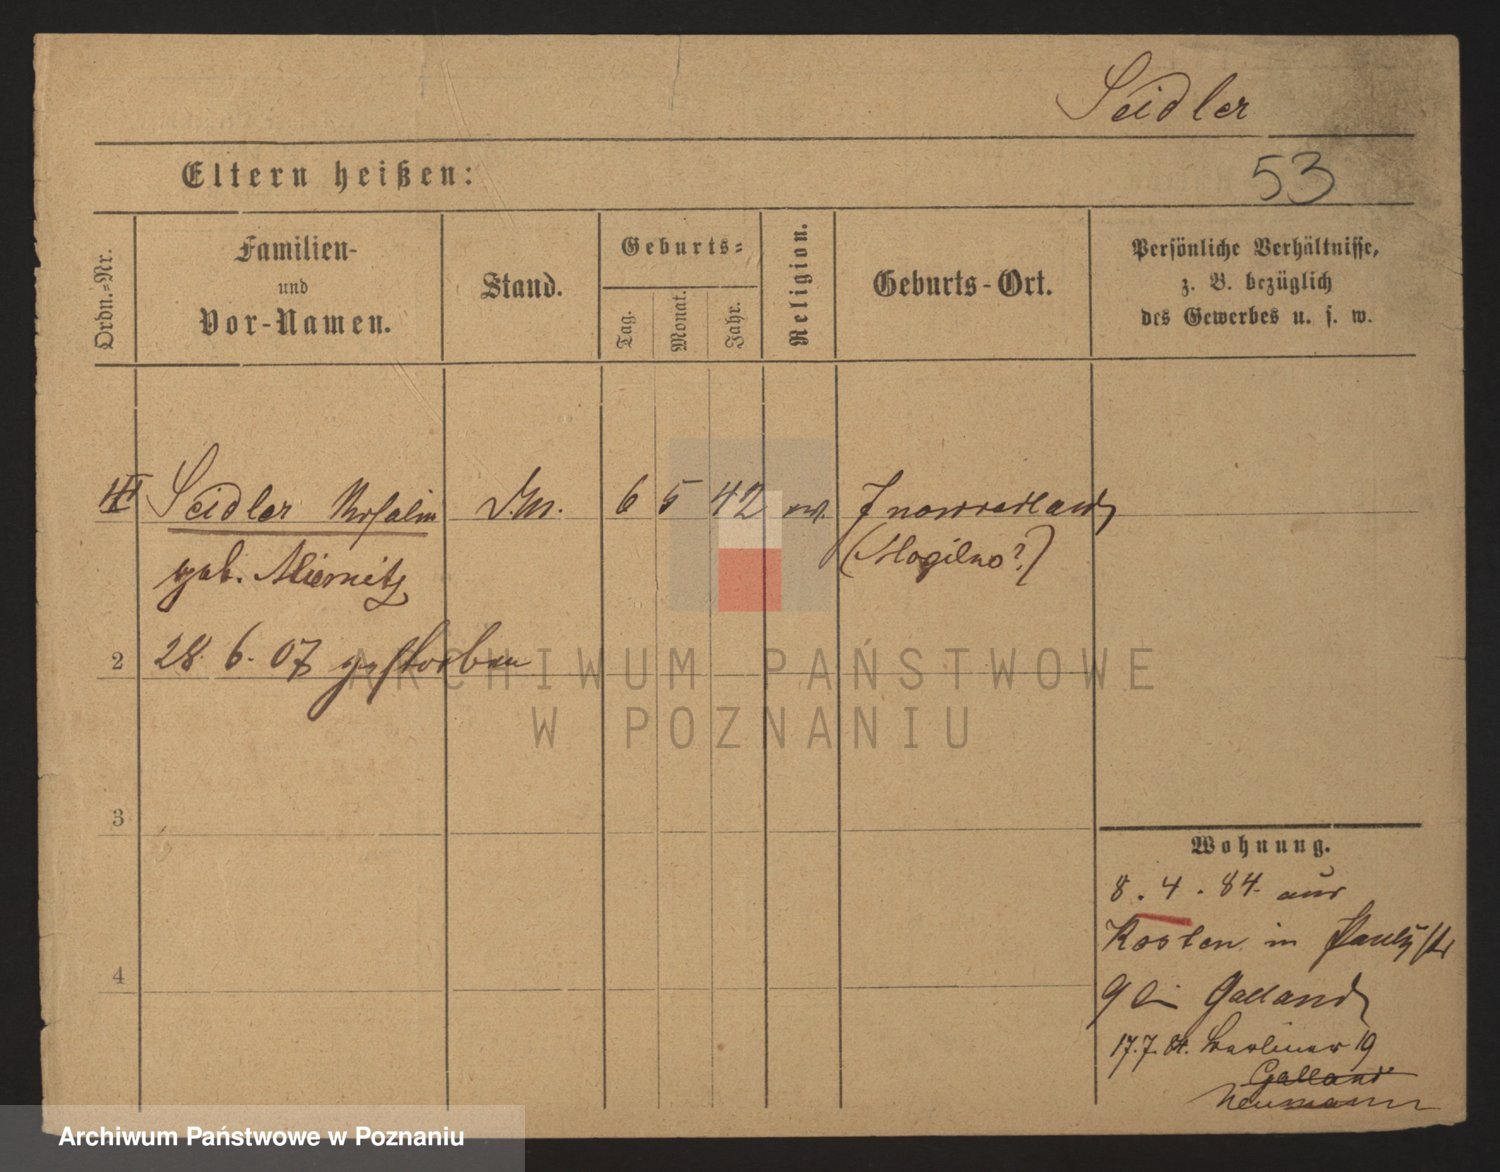 Seidler
Eltern heißen:
53
Ordn.-Nr.
Familien-
und
Vor-Namen.
Stand.
Geburts-
Tag.
Monat.
Jahr.
Religion.
Geburts-Ort.
Persönliche Verhältnisse,
z. B. bezüglich
des Gewerbes u. s. w.
Seidler Rosalie 6 5 42 Inowrazlaw
geb. (Mogilno?)
2 28. 6. 07 gestorben
ARCHIWUM PAŃSTWOWE
W POZNANIU
3
4
Wohnung.
8. 4. 84. aus
Kosten in Paulistr
9 bei Galland
17.7.84. Berliner 19
Galland
Neumann
Archiwum Państwowe w Poznaniu